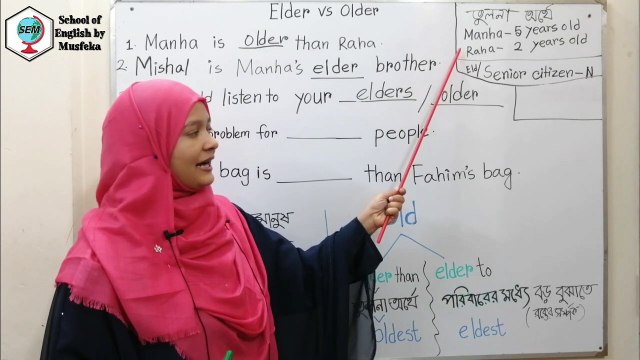 School of
English by
Musfeka
SEM
Elder vs Older
1. Manha is older than Raha.
2. Mishal is Manha's elder brother.
listen to your elders / older
problem for ______ people.
bag is ______ than Fahim's bag.
তুলনা অর্থে
Manha- 5 years old
Raha- 2 years old
Senior citizen-N
old
than
elder to
অর্থে
পরিবারের মধ্যে বড় বুঝাতে
oldest
eldest